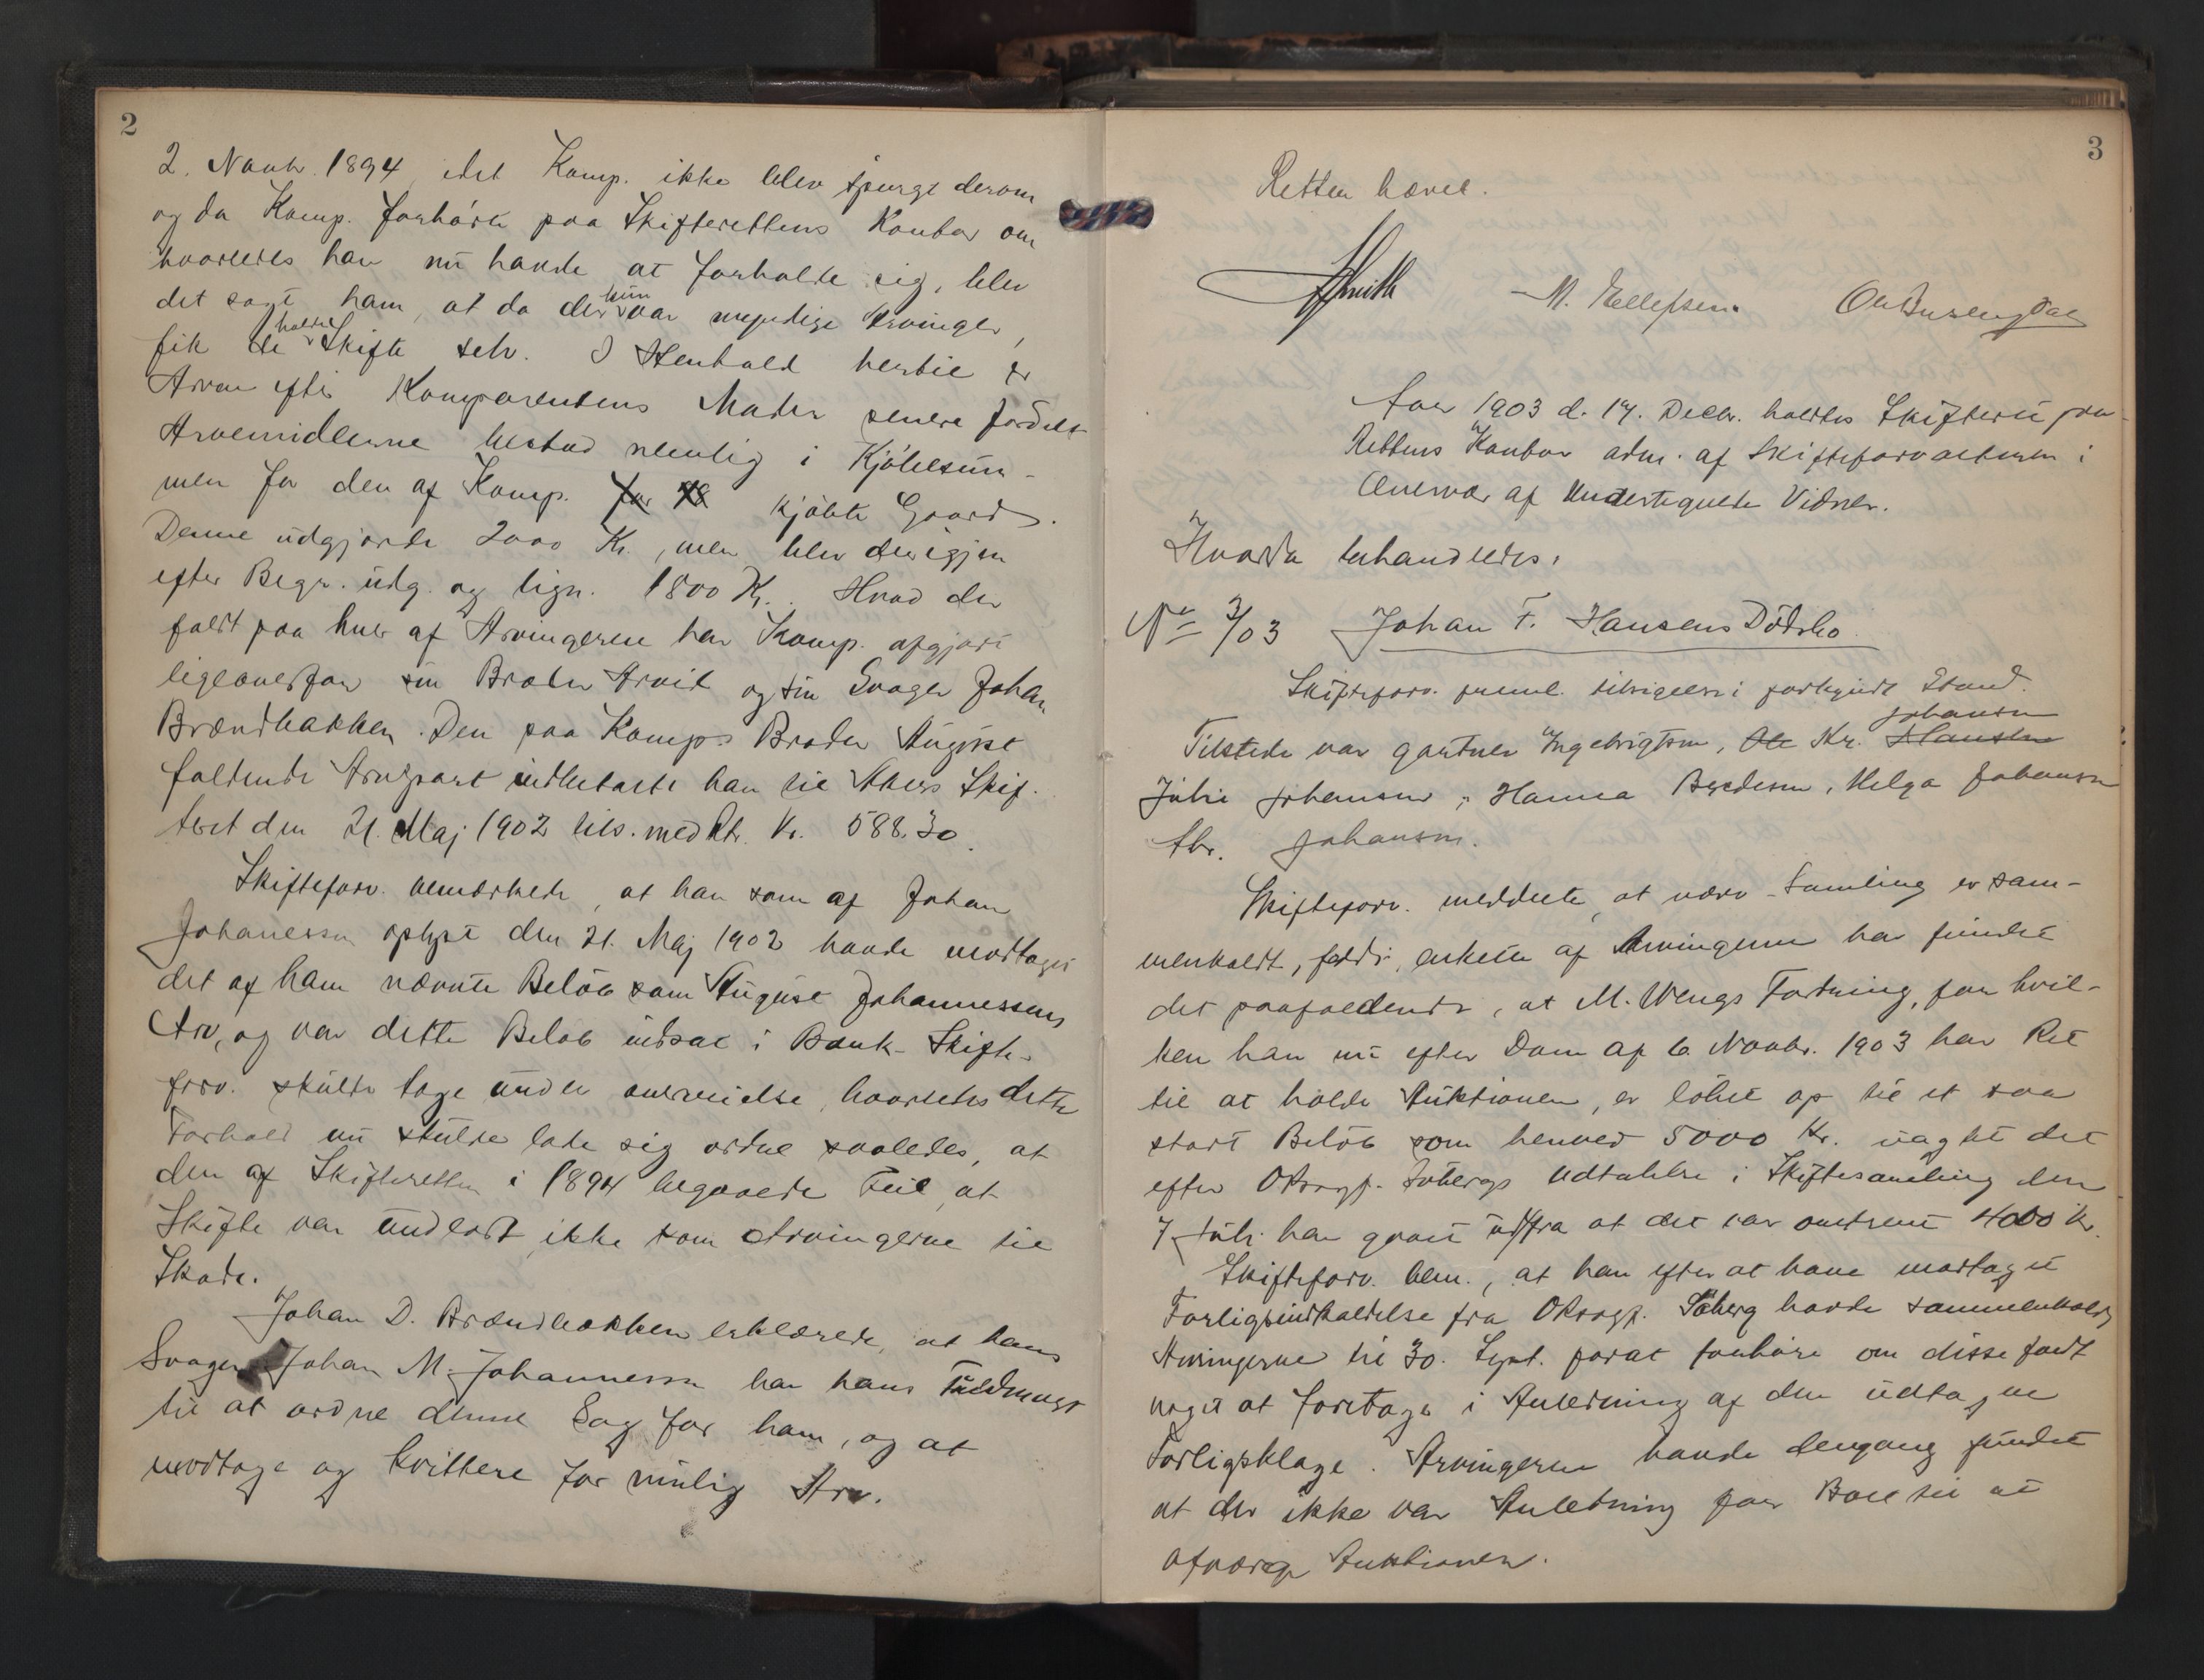 2
2. Novbr. 1894, idet Komp. ikke blev spurgt derom
og da Komp. forhørte paa Skifterettens Kontor om
hvorledes han nu havde at forholde sig, blev
det sagt ham, at da der kun var myndige Arvinger,
fik de holde Skifte selv. I Henhold hertil er
Arven efter Komparentens Moder senere fordelt
Arvemidlerne bestod nemlig i Kjøbesum-
men for den af Komp. for 18 kjøbte Gaard.
Denne udgjorde 2000 Kr., men blev der igjen
efter Begr. udg. og lign. 1800 Kr. Hvad der
faldt paa hver af Arvingerne har Komp. afgjort
ligeoverfor sin Broder Arvid og sin Svoger Johan
Brændbakken. Den paa Komps Broder August
faldende Arvepart indbetalte han til Akers Skif-
teret den 21. Maj 1902 tils. med Rt. Kr. 588.30.
Skifteforv. bemærkede, at han som af Johan
Johanessen oplyst den 21. Maj 1902 havde modtaget
det af ham nævnte Beløb som August Johannessens
Arv, og var dette Beløb indsat i Bank. Skifte-
forv. skulde tage under overveielse, hvorledes dette
Forhold nu skulde lade sig ordne saaledes, at
den af Skifteretten i 1894 begaaede Feil, at
Skifte var undladt, ikke kom Arvingerne til
Skade.
Johan D. Brændbakken erklærede, at hans
Svoger Johan M. Johannessen har hans Fuldmagt
til at ordne denne Sag for ham, og at
modtage og kvittere for mulig Arv.
3
Retten hævet.
Smith M. Ellefsen.
Aar 1903 d. 17. Decbr. holdtes Skifteret paa
Rettens Kontor adm. af Skifteforvalteren i
Overvær af Undertegnede Vidner.
Hvorda behandledes:
No 3/03 Johan F. Hansens Dødsbo.
Skifteforv. freml. tilsigelse i forkyndt Stand.
Tilstede var gartner Ingebrigtsen, Ole Kr. Hansen Johansen
Julie Johansen, Hanna Bredesen, Helga Johansen
Johansen.
Skifteforv. meddelte, at nærv. Samling er sam-
menkaldt, fordi enkelte af Arvingerne har fundet
det paafaldende, at M. Wengs Fordring, for hvil-
ken han nu efter Dom af 6. Novbr. 1903 har Ret
til at holde Auktionen, er løbet op til et saa
stort Beløb som henved 5000 Kr. uagtet det
efter Orsagf. Søbergs Udtalelse i Skiftesamling den
7. Juli har gaaet ud fra at det var omtrent 4000 kr.
Skifteforv. bem., at han efter at have modtaget
Forligsindkaldelse fra Orsagf. Søberg havde sammenkaldt
Arvingerne til 30. Sept. for at forhøre om disse fandt
noget at foretage i Anledning af den udtagne
Forligsklage. Arvingerne havde dengang fundet
at der ikke var Anledning for Boet til at
afværge Auktionen.